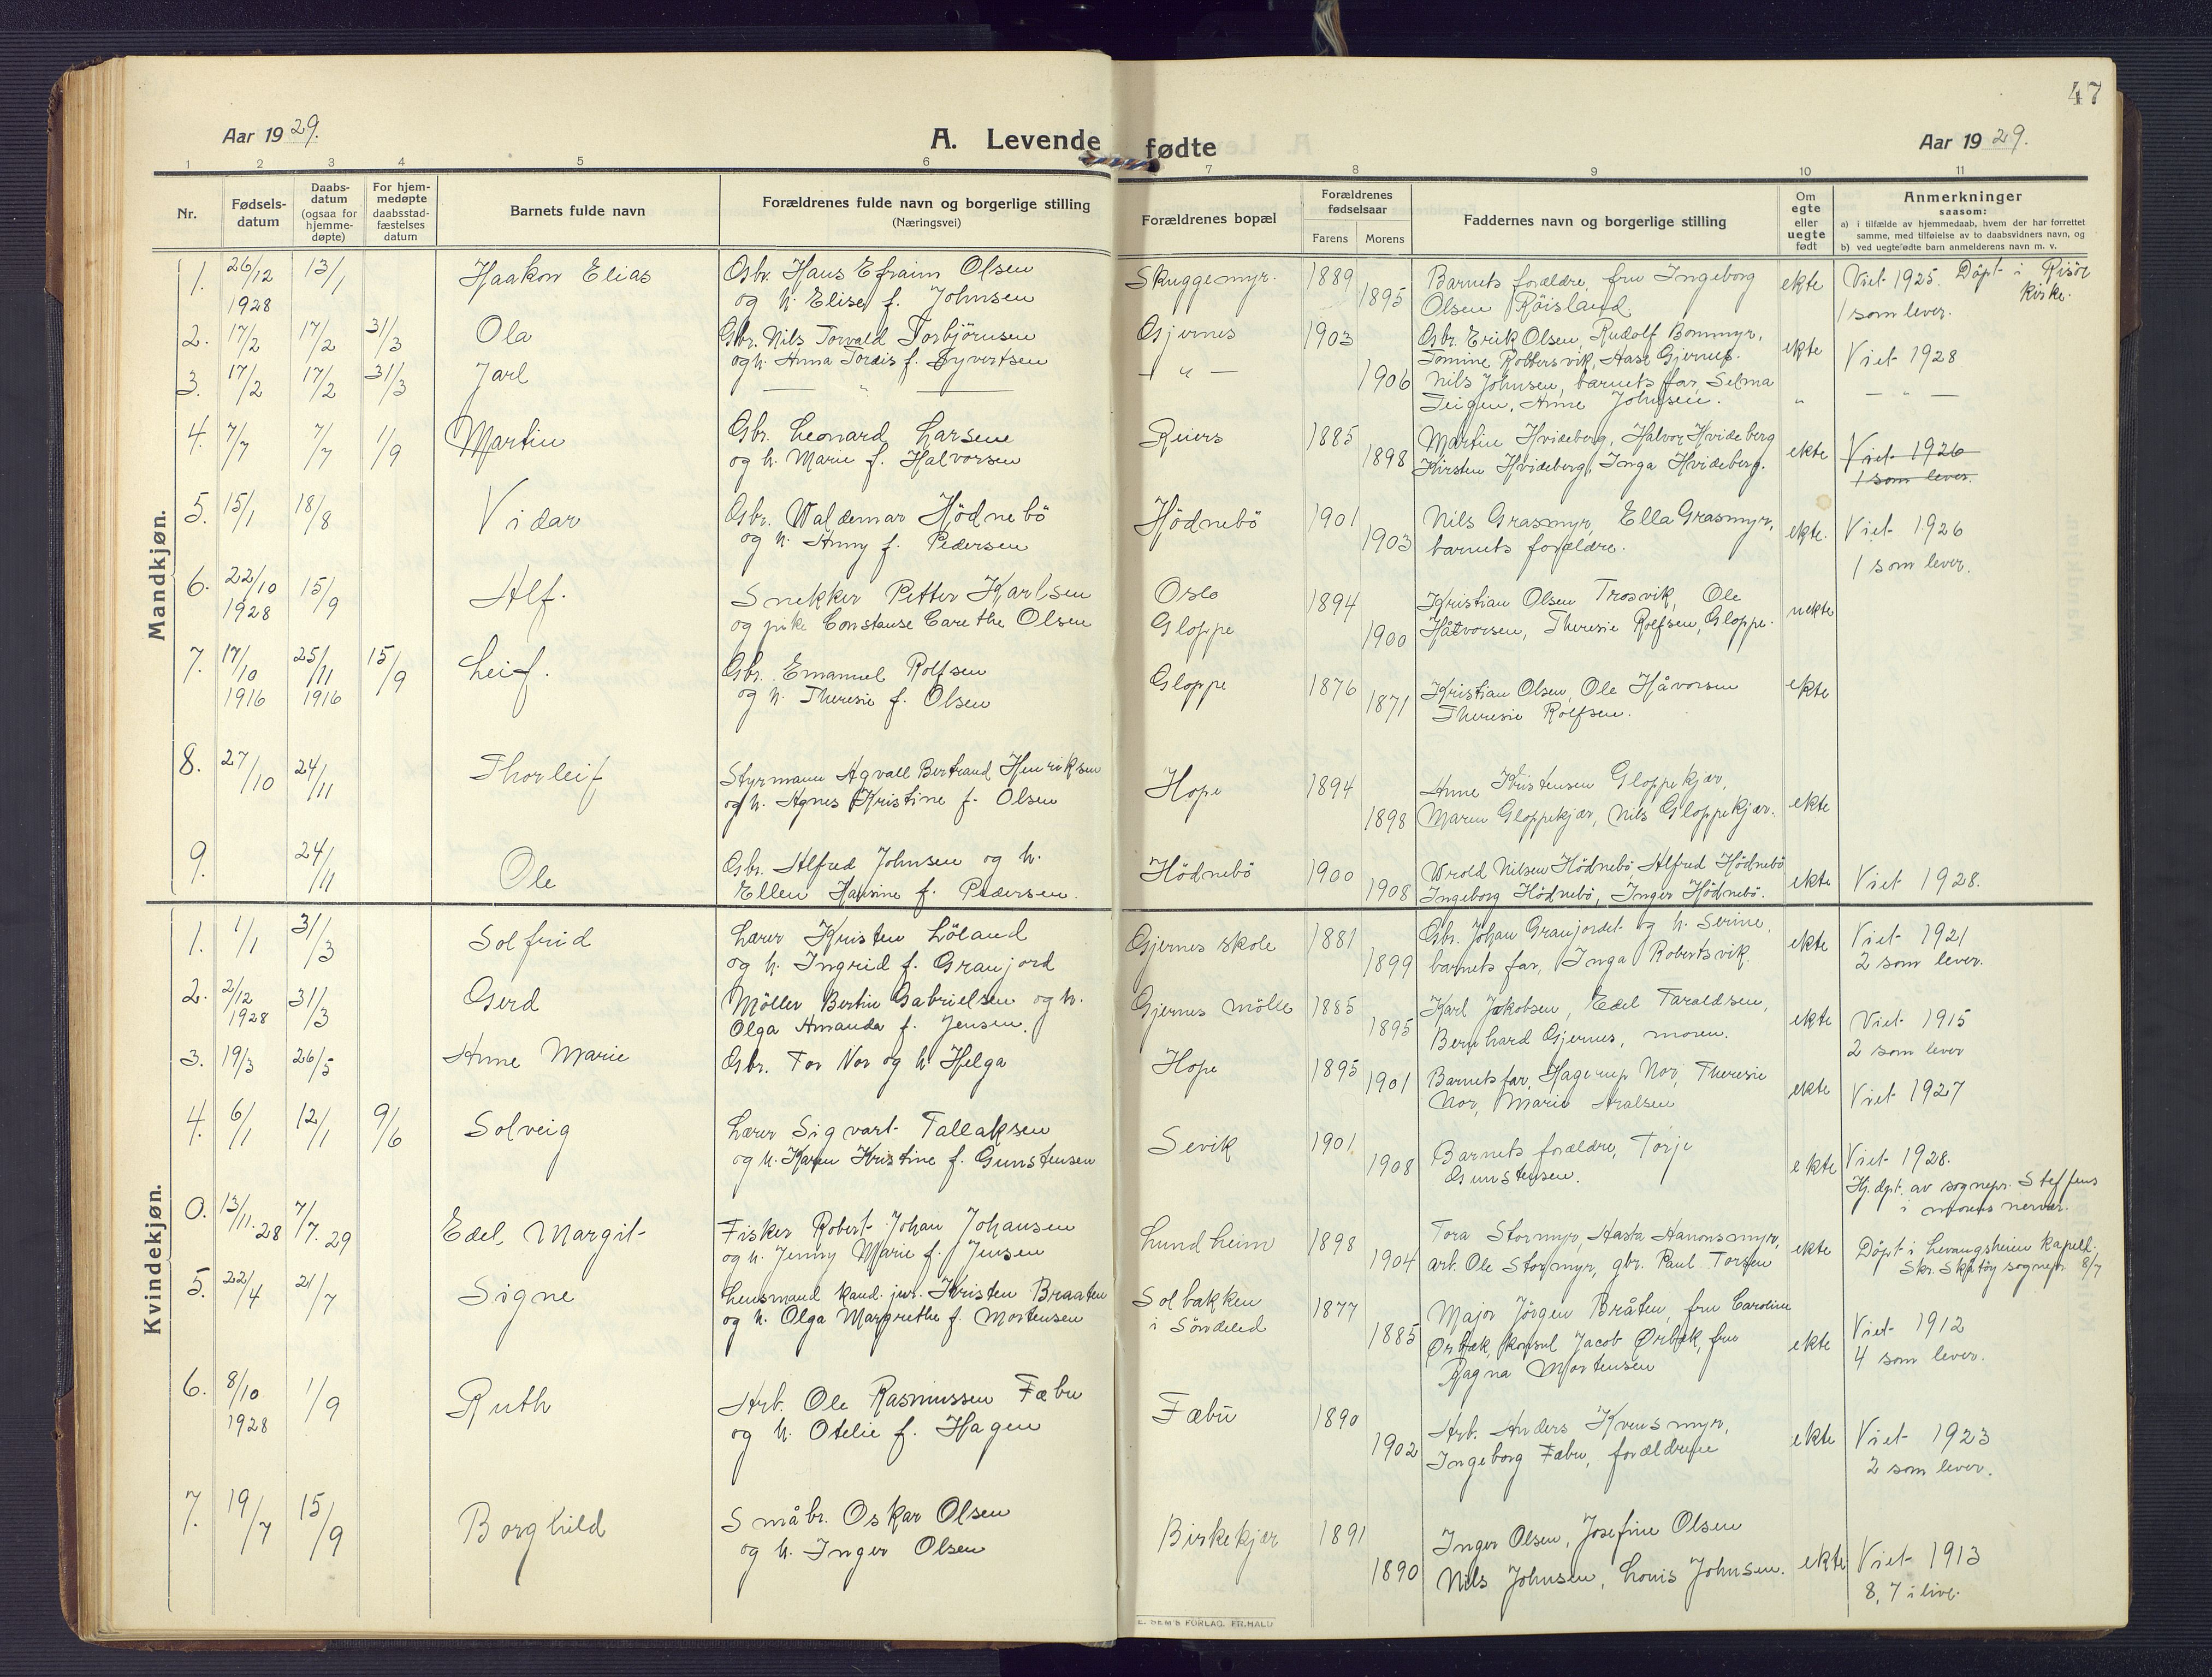 47
Aar 1929.
A. Levende fødte
Aar 1929.
1 2 3 4 5 6 7 8 9 10 11
Nr.
Fødsels-
datum
Daabs-
datum
(ogsaa for
hjemme-
døpte)
For hjem-
medøpte
daabsstad-
fæstelses
datum
Barnets fulde navn
Forældrenes fulde navn og borgerlige stilling
(Næringsvei)
Forældrenes bopæl
Forældrenes
fødselsaar
Farens Morens
Faddernes navn og borgerlige stilling
Om
egte
eller
uegte
født
Anmerkninger
saasom:
a) i tilfælde av hjemmedaab, hvem der har forrettet
samme, med tilføielse av to daabsvidners navn, og
b) ved uegte fødte barn anmelderens navn m. v.
Mandkjøn.
1. 26/12 1928 13/1 Haakon Elias
Gbr. Hans Efraim Olsen
og h. Elise f. Johnsen
Skuggemyr. 1889 1895
Barnets forældre, fru Ingeborg
Olsen Röisland.
ekte
Viet 1925. Döpt i Risör
kirke.
1 som lever.
2. 17/2 17/2 31/3 Ola
Gbr. Nils Torvald Torbjörnsen
og h. Anna Tordis f. Syvertsen
Gjernes 1903
Gbr. Erik Olsen, Rudolf Bommyr,
Tomine Robbersvik, Aase Gjernes.
ekte
Viet 1928
3. 17/2 17/2 31/3 Jarl
— " —
— " — 1906
Nils Johnsen, barnets far, Selma
Teigen, Anne Johnsen.
"
— " —
4. 7/7 7/7 1/9 Martin
Gbr. Leonard Larsen
og h. Marie f. Halvorsen
Reiers 1885 1898
Martin Hvideberg, Halvor Hvideberg
Kirsten Hvideberg, Inga Hvideberg.
ekte
Viet 1926
1 som lever.
5. 15/1 18/8 Vidar
Gbr. Waldemar Hödnebö
og h. Anny f. Pedersen
Hödnebö 1901 1903
Nils Grasmyr, Ella Grasmyr,
barnets forældre.
ekte.
Viet 1926
1 som lever.
6. 22/10 1928 15/9 Alf.
Snekker Petter Karlsen
og pike Constanse Carethe Olsen
Oslo
Gloppe
1894 1900
Kristian Olsen Trosvik, Ole
Håvorsen, Theresie Rolfsen, Gloppe.
uekte
7. 17/10 1916 25/11 1916 15/9 Leif.
Gbr. Emanuel Rolfsen
og h. Theresie f. Olsen
Gloppe 1876 1871
Kristian Olsen, Ole Håvorsen
Theresie Rolfsen.
ekte
8. 27/10 24/11 Thorleif
Styrmann Agvall Bertrand Henriksen
og h. Agnes Kristine f. Olsen
Hope 1894 1898
Anne Kristensen Gloppekjær,
Maren Gloppekjær, Nils Gloppekjær.
ekte
9. 24/11 Ole
Gbr. Alfred Johnsen og h.
Ellen Hansine f. Pedersen.
Hödnebö 1900 1908
Wrold Nilsen Hödnebö, Alfred Hödnebö
Ingeborg Hödnebö, Inger Hödnebö.
ekte
Viet 1928.
Kvindekjøn.
1. 1/1 31/3 Solfrid
Lærer Kristen Löland
og h. Ingrid f. Granjord
Gjernes skole 1881 1899
Gbr. Johan Granjordet og h. Serine,
barnets far, Inga Robertsvik.
ekte
Viet 1921
2 som lever.
2. 2/12 1928 31/3 Gerd
Möller Bertin Gabrielsen og h.
Olga Amanda f. Jensen.
Gjernes mölle 1885 1895
Karl Jakobsen, Edel Taraldsen,
Bernhard Gjernes, moren.
ekte
Viet 1915
2 som lever
3. 19/3 26/5 Anne Marie
Gbr. Tor Nor og h. Helga
Hope 1895 1901
Barnets far, Hagerup Nor, Theresie
Nor, Marie Aralsen
ekte
Viet 1927
4. 6/1 12/1 9/6 Solveig
Lærer Sigvart Tallaksen
og h. Karen Kristine f. Gunstensen
Sevik 1901 1908
Barnets forældre, Torje
Gunstensen.
ekte
Viet 1928.
Hj.dpt. av sognepr. Steffens
i morens nervær.
0. 13/11.28 7/7.29 Edel Margit
Fisker Robert Johan Johansen
og h. Jenny Marie f. Jensen
Lundheim 1898 1904
Tora Stormyr, Aasta Aanonsmyr,
arb. Ole Stormyr, gbr. Paul Torsen
ekte
Döpt i Levangsheien kapell.
Skr. Skåtöy sognepr. 8/7
5. 22/4 21/7 Signe
Lensmand kand. jur. Kristen Braaten
og h. Olga Margrethe f. Mortensen
Solbakken
i Söndeled
1877 1885
Major Jörgen Bråten, fru Caroline
Ørbæk, konsul Jacob Ørbæk, fru
Ragna Mortensen
ekte
Viet 1912
4 som lever.
6. 8/10 1928 1/9 Ruth
Arb. Ole Rasmussen Fæbu
og h. Otelie f. Hagen
Fæbu 1890 1902
Arb. Anders Kvensmyr,
Ingeborg Fæbu, forældrene
ekte
Viet 1923
2 som lever.
7. 19/7 15/9 Borghild
Småbr. Oskar Olsen
og h. Inger Olsen
Birkekjær 1891 1890
Inger Olsen, Josefine Olsen
Nils Johnsen, Louis Johnsen.
ekte
Viet 1913
8, 7 i live.
E. SEM'S FORLAG. FR.HALD